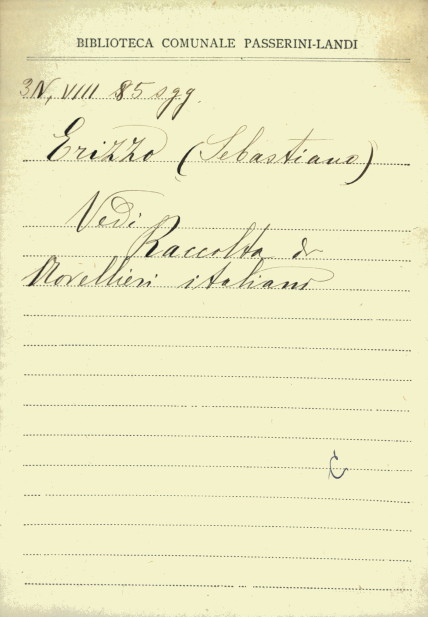 BIBLIOTECA COMUNALE PASSERINI-LANDI
3N, VIII 85 sgg.
Erizzo (Sebastiano)
Vedi
Raccolta di
Novellieri italiani
C